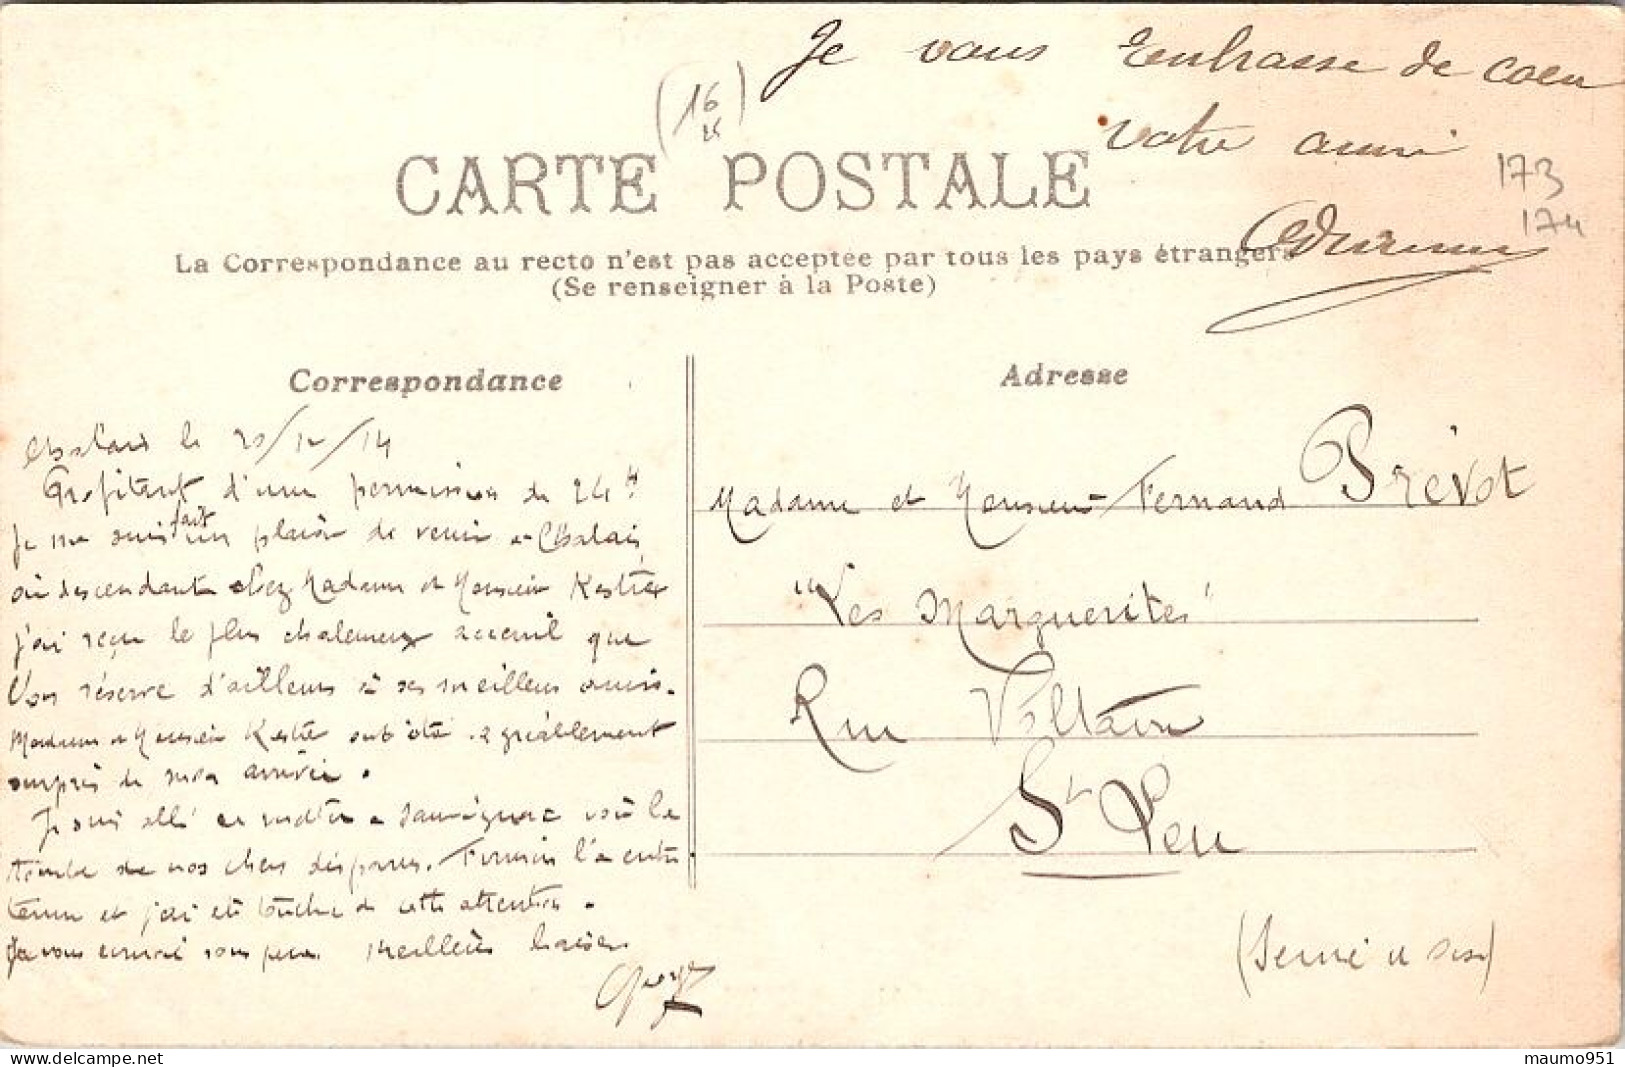 Je vous Embrasse de coeur
votre amie
(16
173
174
CARTE POSTALE
La Correspondance au recto n'est pas acceptée par tous les pays étrangers
(Se renseigner à la Poste)
Correspondance
Chalais le 20/12/14
Profitant d'une permission de 24 H
Je me suis fait un plaisir de venir à Chalais
où descendant chez Madame et Monsieur Kestler
j'ai reçu le plus chaleureux accueil que
Vous réserve d'ailleurs à ses meilleurs amis.
Madame et Monsieur ont été agréablement
surpris de mon arrivée.
Je suis allé en à Sauvignac voir la
tombe de nos chers disparus. Firmin l'a entre
tenue et j'ai été touché de cette attention.
Je vous écrirai sous peu. Meilleurs baisers
Georges
Adresse
Madame et Monsieur Fernand Prévot
"Les Marguerites"
Rue Voltaire
St Leu
(Seine et Oise)
maumo951